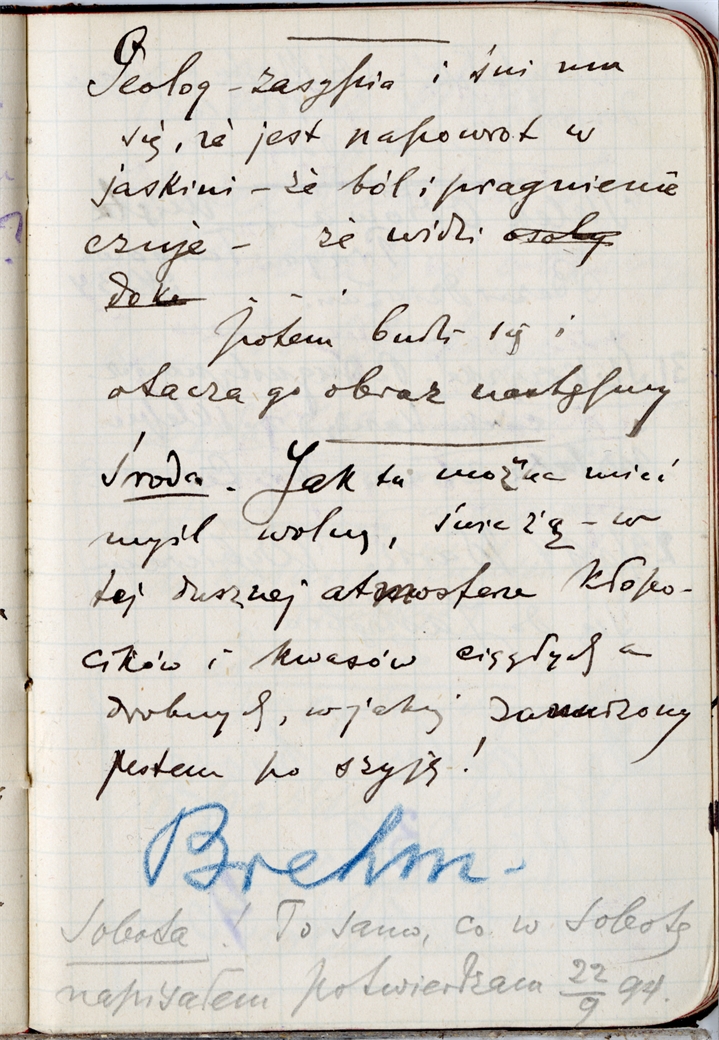 Geolog – zasypia i śni mu
się, że jest napowrot w
jaskini – że ból i pragnienie
czuje – że widzi osoby
doke
potem budzi się i
otacza go obraz następny
Środa. Jak tu można mieć
myśl wolną, świeżą – w
tej dusznej atmosferze kłopo-
cików i kwasów ciągłych a
drobnych, w jakiej zanurzony
jestem po szyję!
Brehm.
Sobota! To samo, co w sobotę
napisałem potwierdzam 22/9 94.